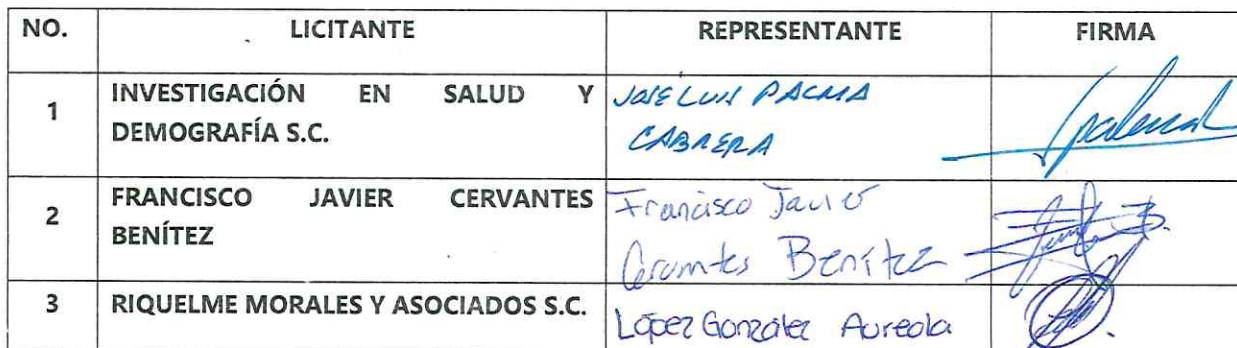 NO. LICITANTE REPRESENTANTE FIRMA
1 INVESTIGACIÓN EN SALUD Y DEMOGRAFÍA S.C. JOSE LUIS PALMA CABRERA
2 FRANCISCO JAVIER CERVANTES BENÍTEZ Francisco Javier Cervantes Benítez
3 RIQUELME MORALES Y ASOCIADOS S.C. López González Aureola